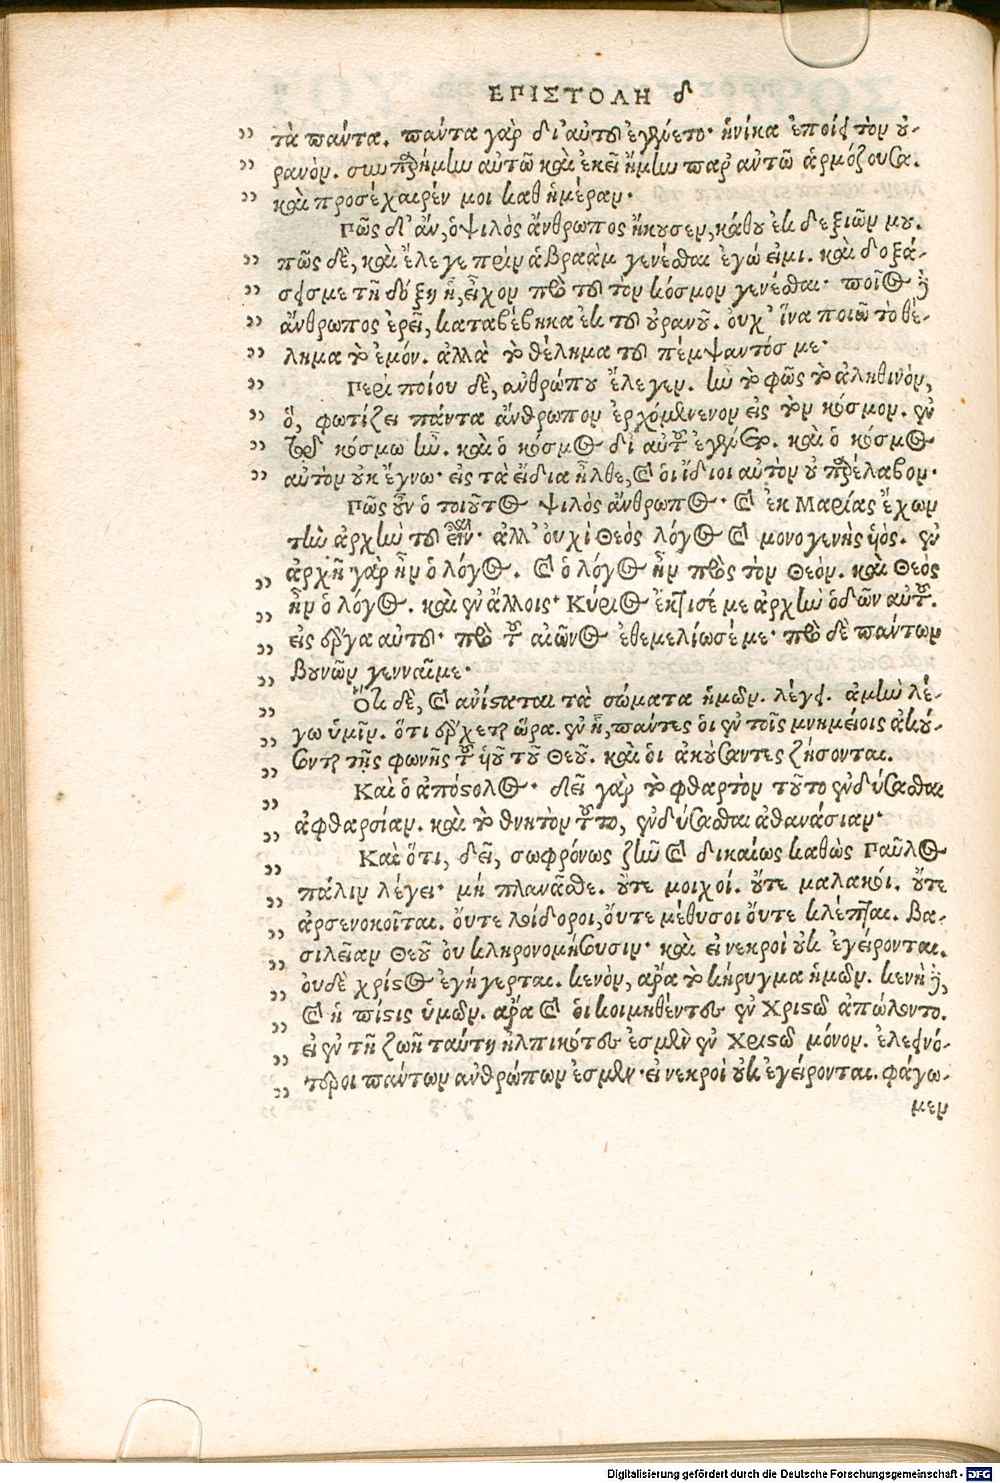 ΕΠΙΣΤΟΛΗ δ
τὰ πάντα. πάντα γὰρ δι' αὐτοῦ ἐγένετο· ἡνίκα ἐποίει τὸν οὐ-
ρανὸν. συμπαρήμην αὐτῶ καὶ ἐκεῖ ἤμην παρ' αὐτῶ ἁρμόζουσα.
καὶ προσέχαιρέν μοι καθ ἡμέραν·
Πῶς δ' ἂν, ὁ ψιλὸς ἄνθρωπος ἤκουσεν, κάθου ἐκ δεξιῶν μου.
πῶς δὲ, καὶ ἔλεγε πρὶν ἁβραὰμ γενέσθαι ἐγώ εἰμι. καὶ δοξά-
σεισμε τῆ δόξη ἧ, εἶχον πρὸ τοῦ τὸν κόσμον γενέσθαι· ποῖος δὲ
ἄνθρωπος ἐρεῖ, καταβέβηκα ἐκ τοῦ οὐρανοῦ. οὐχ' ἵνα ποιῶ τὸ θέ-
λημα τὸ ἐμόν. ἀλλὰ τὸ θέλημα τοῦ πέμψαντός με·
Περι ποίου δὲ, ἀνθρώπου ἔλεγεν. ἦν τὸ φῶς τὸ ἀληθινὸν,
ὅ, φωτίζει πάντα ἄνθρωπον ἐρχόμενενον εἰς τὸν κόσμον. ἐν
τῶ κόσμω ἦν. καὶ ὁ κόσμος δι αὐτοῦ ἐγένετο. καὶ ὁ κόσμος
αὐτὸν οὐκ ἔγνω· εἰς τὰ εἴδια ἦλθε, καὶ ὁι ἴδιοι αὐτὸν οὐ παρέλαβον·
Πῶς οὖν ὁ τοιοῦτος ψιλὸς ἄνθρωπος· καὶ ἐκ Μαρίας ἔχων
τὴν ἀρχὴν τοῦ εἶναι· ἀλλ' οὐχὶ Θεὸς λόγος καὶ μονογενὴς ὑιὸς. ἐν
ἀρχῆ γὰρ ἦν ὁ λόγος. καὶ ὁ λόγος ἦν πρὸς τὸν Θεόν. καὶ Θεὸς
ἦν ὁ λόγος. καὶ ἐν ἄλλοις· Κύριος ἔκτισέ με ἀρχὴν ὁδῶν αὐτοῦ.
εἰς ἔργα αὐτοῦ· πρὸ τοῦ αἰῶνος ἐθεμελίωσέ με· πρὸ δὲ πάντων
βουνῶν γεννᾶΐμε·
Ὅτι δὲ, καὶ ἀνίσταται τὰ σώματα ἡμῶν. λέγει. ἀμὴν λέ-
γω ὑμῖν. ὅτι ἔρχεται ὥρα. ἐν ἧ, πάντες ὁι ἐν τοῖς μνημείοις ἀκού-
σονται τῆς φωνῆς τοῦ ὑιοῦ τοῦ Θεοῦ. καὶ ὁι ἀκούσαντες ζήσονται.
Καὶ ὁ ἀπόστολος· δεῖ γὰρ τὸ φθαρτὸν τοῦτο ἐνδύσασθαι
ἀφθαρσίαν. καὶ τὸ θνητὸν τοῦτο, ἐνδύσασθαι ἀθανάσιαν·
Καὶ ὅτι, δεῖ, σωφρόνως ζῆν καὶ δικαίως καθὼς Παῦλος
πάλιν λέγει· μὴ πλανᾶσθε. οὔτε μοιχοί. οὔτε μαλακόι. οὔτε
ἀρσενοκοῖται. ὄυτε λοίδοροι, ὄυτε μέθυσοι ὄυτε κλέπται. Βα-
σιλεῖαν Θεοῦ ὀυ κληρονομήσουσιν· καὶ εἰ νεκροὶ οὐκ ἐγείρονται.
ὀυδὲ χρίστος ἐγήγερται. κενὸν, ἄρα τὸ κήρυγμα ἡμῶν. κενὴ δὲ,
καὶ ἡ πίστις ὑμῶν. ἄρα καὶ ὁι κοιμηθέντες ἐν Χριστῶ ἀπώλοντο.
εἰ ἐν τῆ ζωῆ ταύτη ἠλπικότες ἐσμὲν ἐν Χριστῶ μόνον. ἐλεεινό-
τεροι πάντων ἀνθρώπων ἐσμέν· εἰ νεκροὶ οὐκ ἐγείρονται. φάγω-
μεν
Digitalisierung gefördert durch die Deutsche Forschungsgemeinschaft - DFG